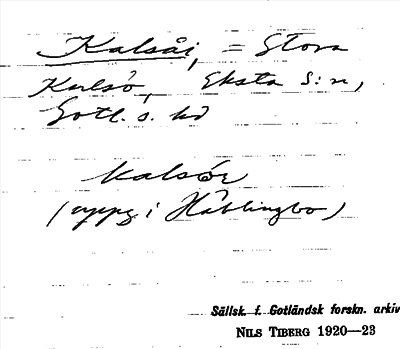 Kalsåi, = Stora
Karlsö, Eksta s:n,
Gotl. s. hd
kalsör
(uppg. i Hablingbo)
Sällsk. f. Gotländsk forskn. arkiv
NILS TIBERG 1920—23